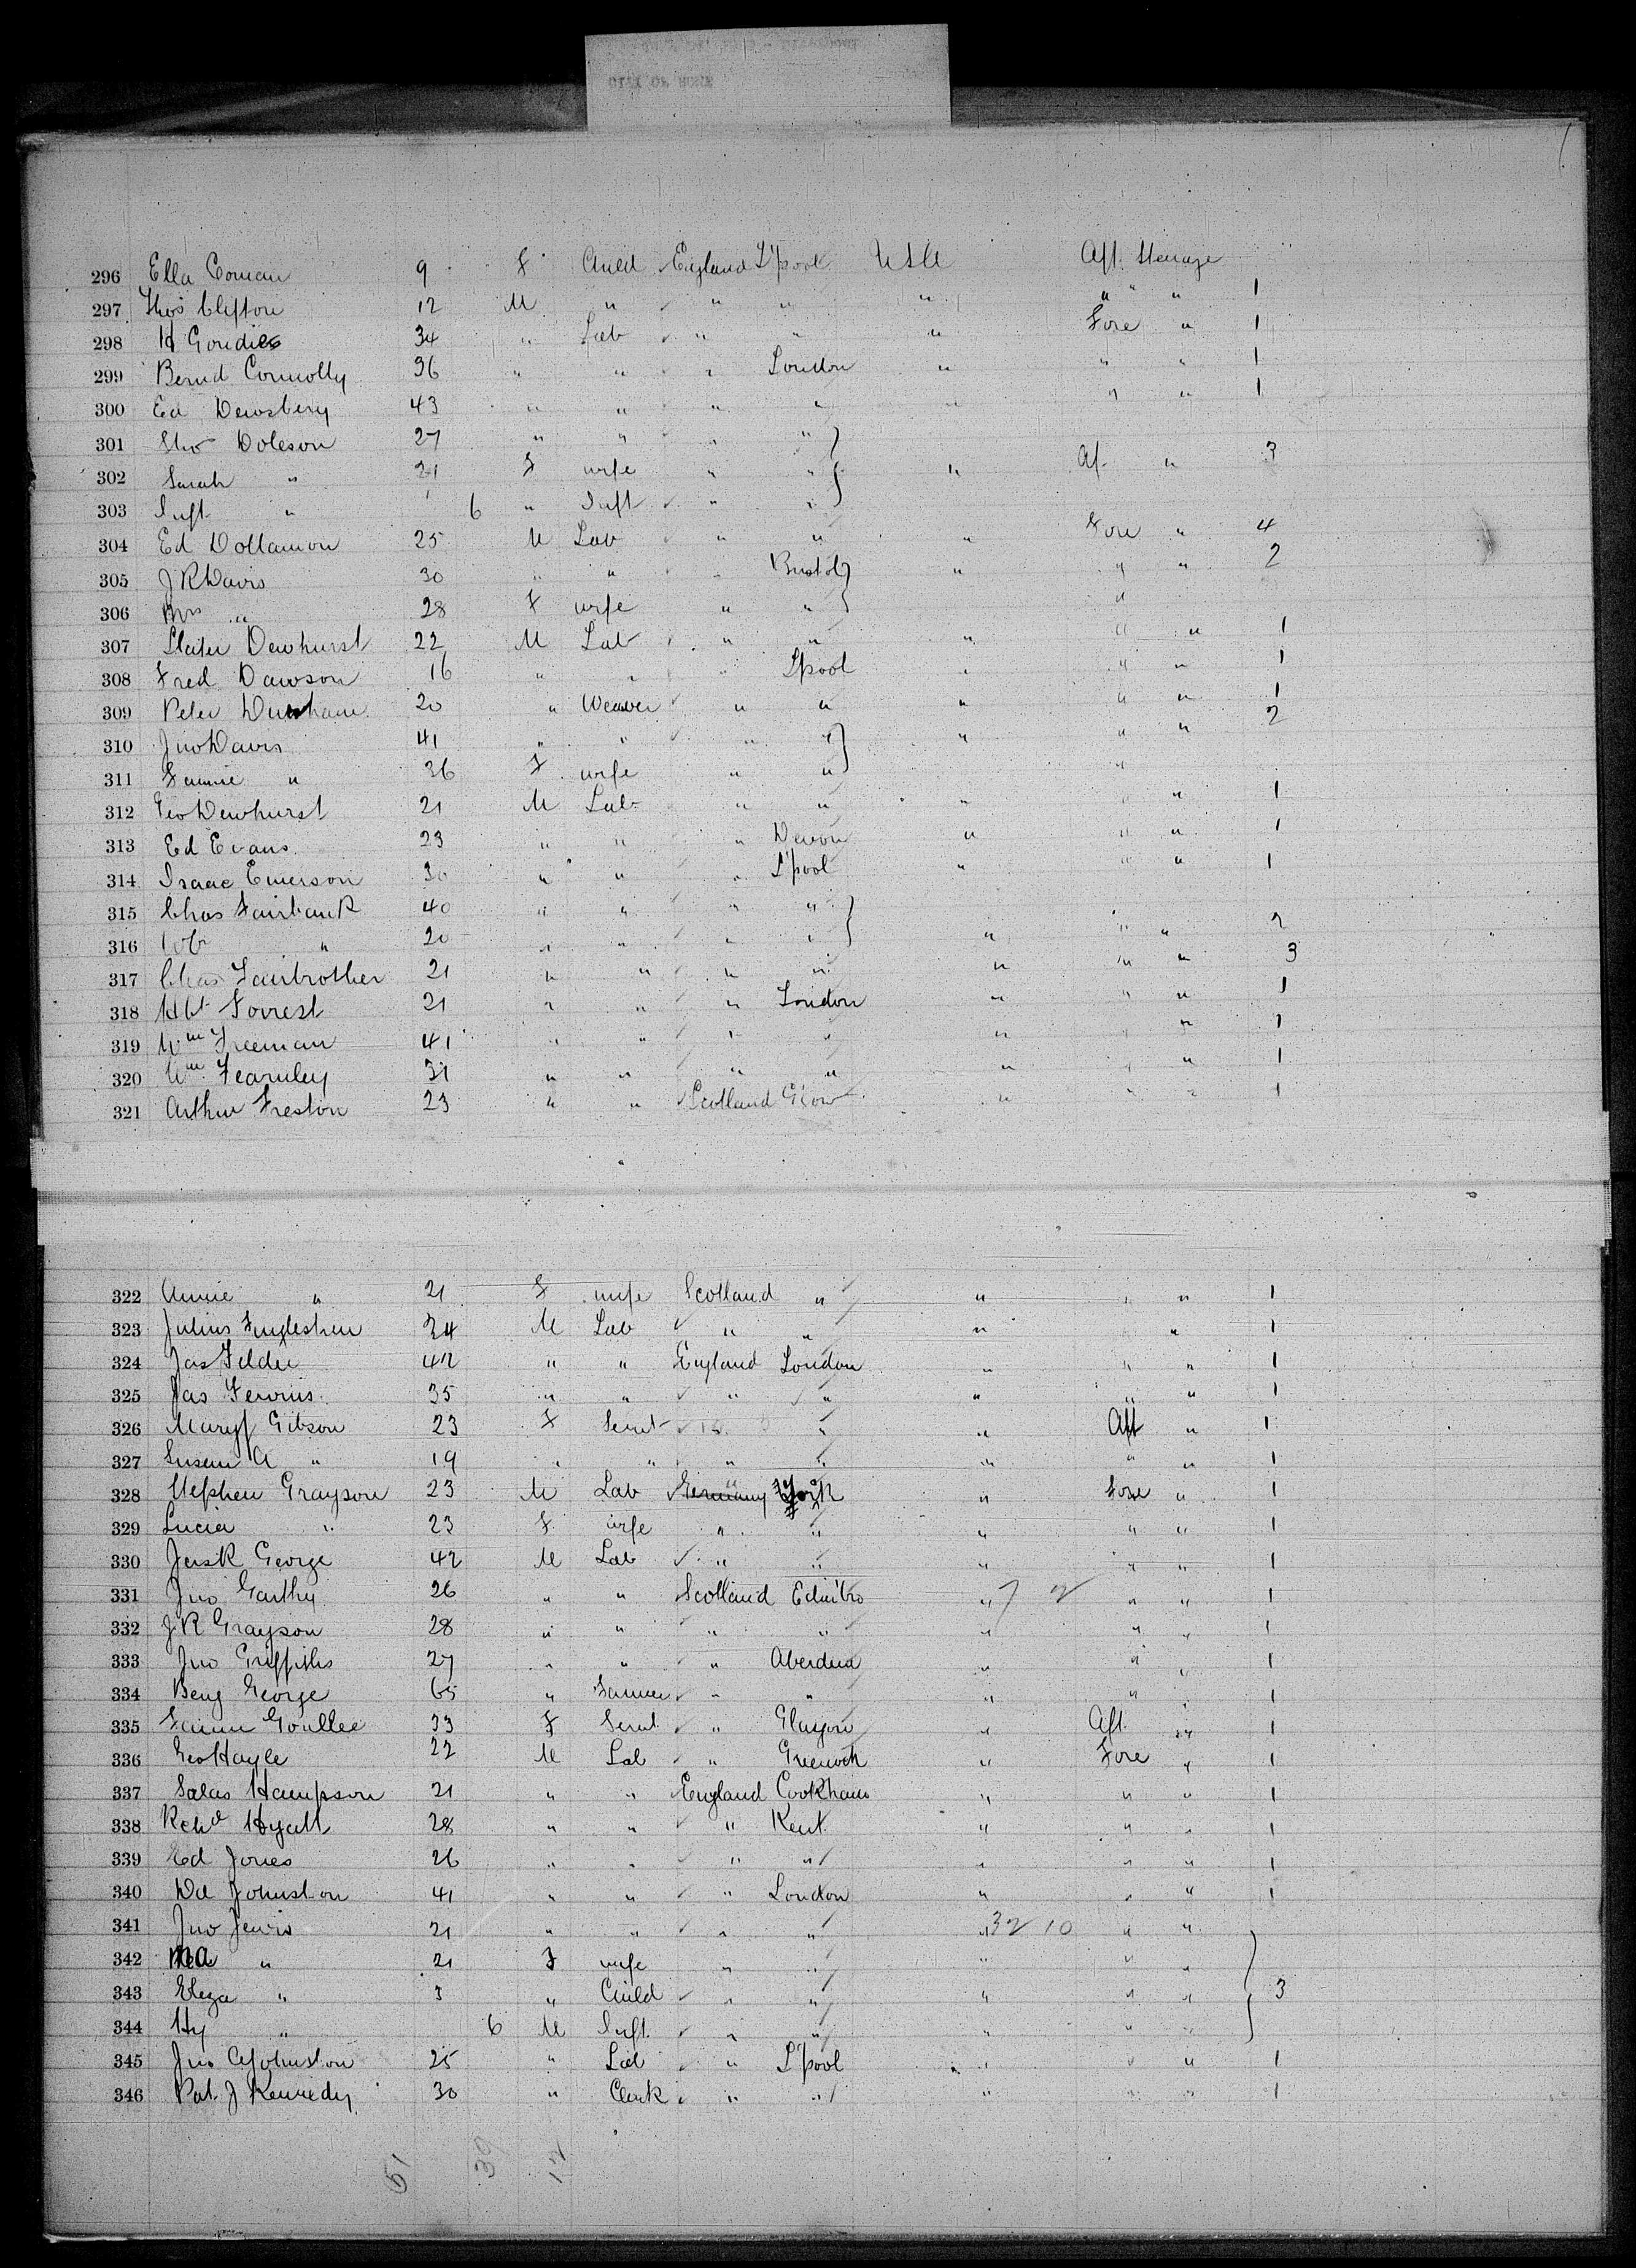 296 Ella Coman 9 F Child England L'pool USA Aft Steerage
297 Thos Clifton 12 M " " " " " " 1
298 H Goudie 34 " Lab " " " Fore " 1
299 Bernd Connolly 36 " " " London " " " 1
300 Ed Dewsbery 43 " " " " " " " 1
301 Tho Doleson 27 " " " "
302 Sarah " 21 F wife " " " Af " 3
303 Inft " 6 " Inft " "
304 Ed Dollamon 25 M Lab " " " Fore " 4
305 J R Davis 30 " " " Bristol " " " 2
306 Mrs " 28 F wife " " "
307 Slater Dewhurst 22 M Lab " " " " " 1
308 Fred Dawson 16 " " " L'pool " " " 1
309 Peter Durham 20 " Weaver " " " " " 1
310 Jno Davis 41 " " " " " " " 2
311 Fannie " 36 F wife " " "
312 Geo Dewhurst 21 M Lab " " " " " 1
313 Ed Evans 23 " " " Devon " " " 1
314 Isaac Emerson 30 " " " L'pool " " " 1
315 Chas Fairbank 40 " " " "
316 " 20 " " " " " " " 2
317 Chas Fairbrother 21 " " " " " " " 3
318 Forrest 21 " " " London " " " 1
319 Wm Freeman 41 " " " " " " 1
320 Wm Fearnley 31 " " " " " " " 1
321 Arthur Freston 23 " " Scotland Glow " " " 1
322 Annie " 21 F wife Scotland " " " " 1
323 Julius 34 M Lab " " " " 1
324 Jas Felder 42 " " England London " " " 1
325 Jas 35 " " " " " " " 1
326 Mary Gibson 23 F Servt " " Aft " 1
327 Susan A " 19 " " " " " " " 1
328 Stephen Grayson 23 M Lab Germany York " Fore " 1
329 Lucia " 23 F wife " " " " " 1
330 George 42 M Lab " " " " " 1
331 Jno Garthy 26 " " Scotland Edinbro " 7 2 " " 1
332 J R Grayson 28 " " " " " " " 1
333 Jno Griffiths 27 " " " Aberdeen " " " 1
334 Benj George 65 " Farmer " " " " " 1
335 Goullee 33 F Servt " Glasgow " Aft " 1
336 Geo Hayle 22 M Lab " Greenock " Fore " 1
337 Salas Hampson 21 " " England Cookham " " " 1
338 Richd Hyatt 28 " " " Kent " " " 1
339 Ed Jones 26 " " " " " " " 1
340 Wd Johnston 41 " " " London " " " 1
341 Jno Jewis 21 " " " " " 32 10 " "
342 " 21 F wife " " " " "
343 Eliza " 3 " Child " " " " " 3
344 Hy " 6 M Inft " " " " "
345 Jno A Johnston 25 " Lab " L'pool " " " 1
346 Pat J Kennedy 30 " Clerk " " " " " 1
61 39 12